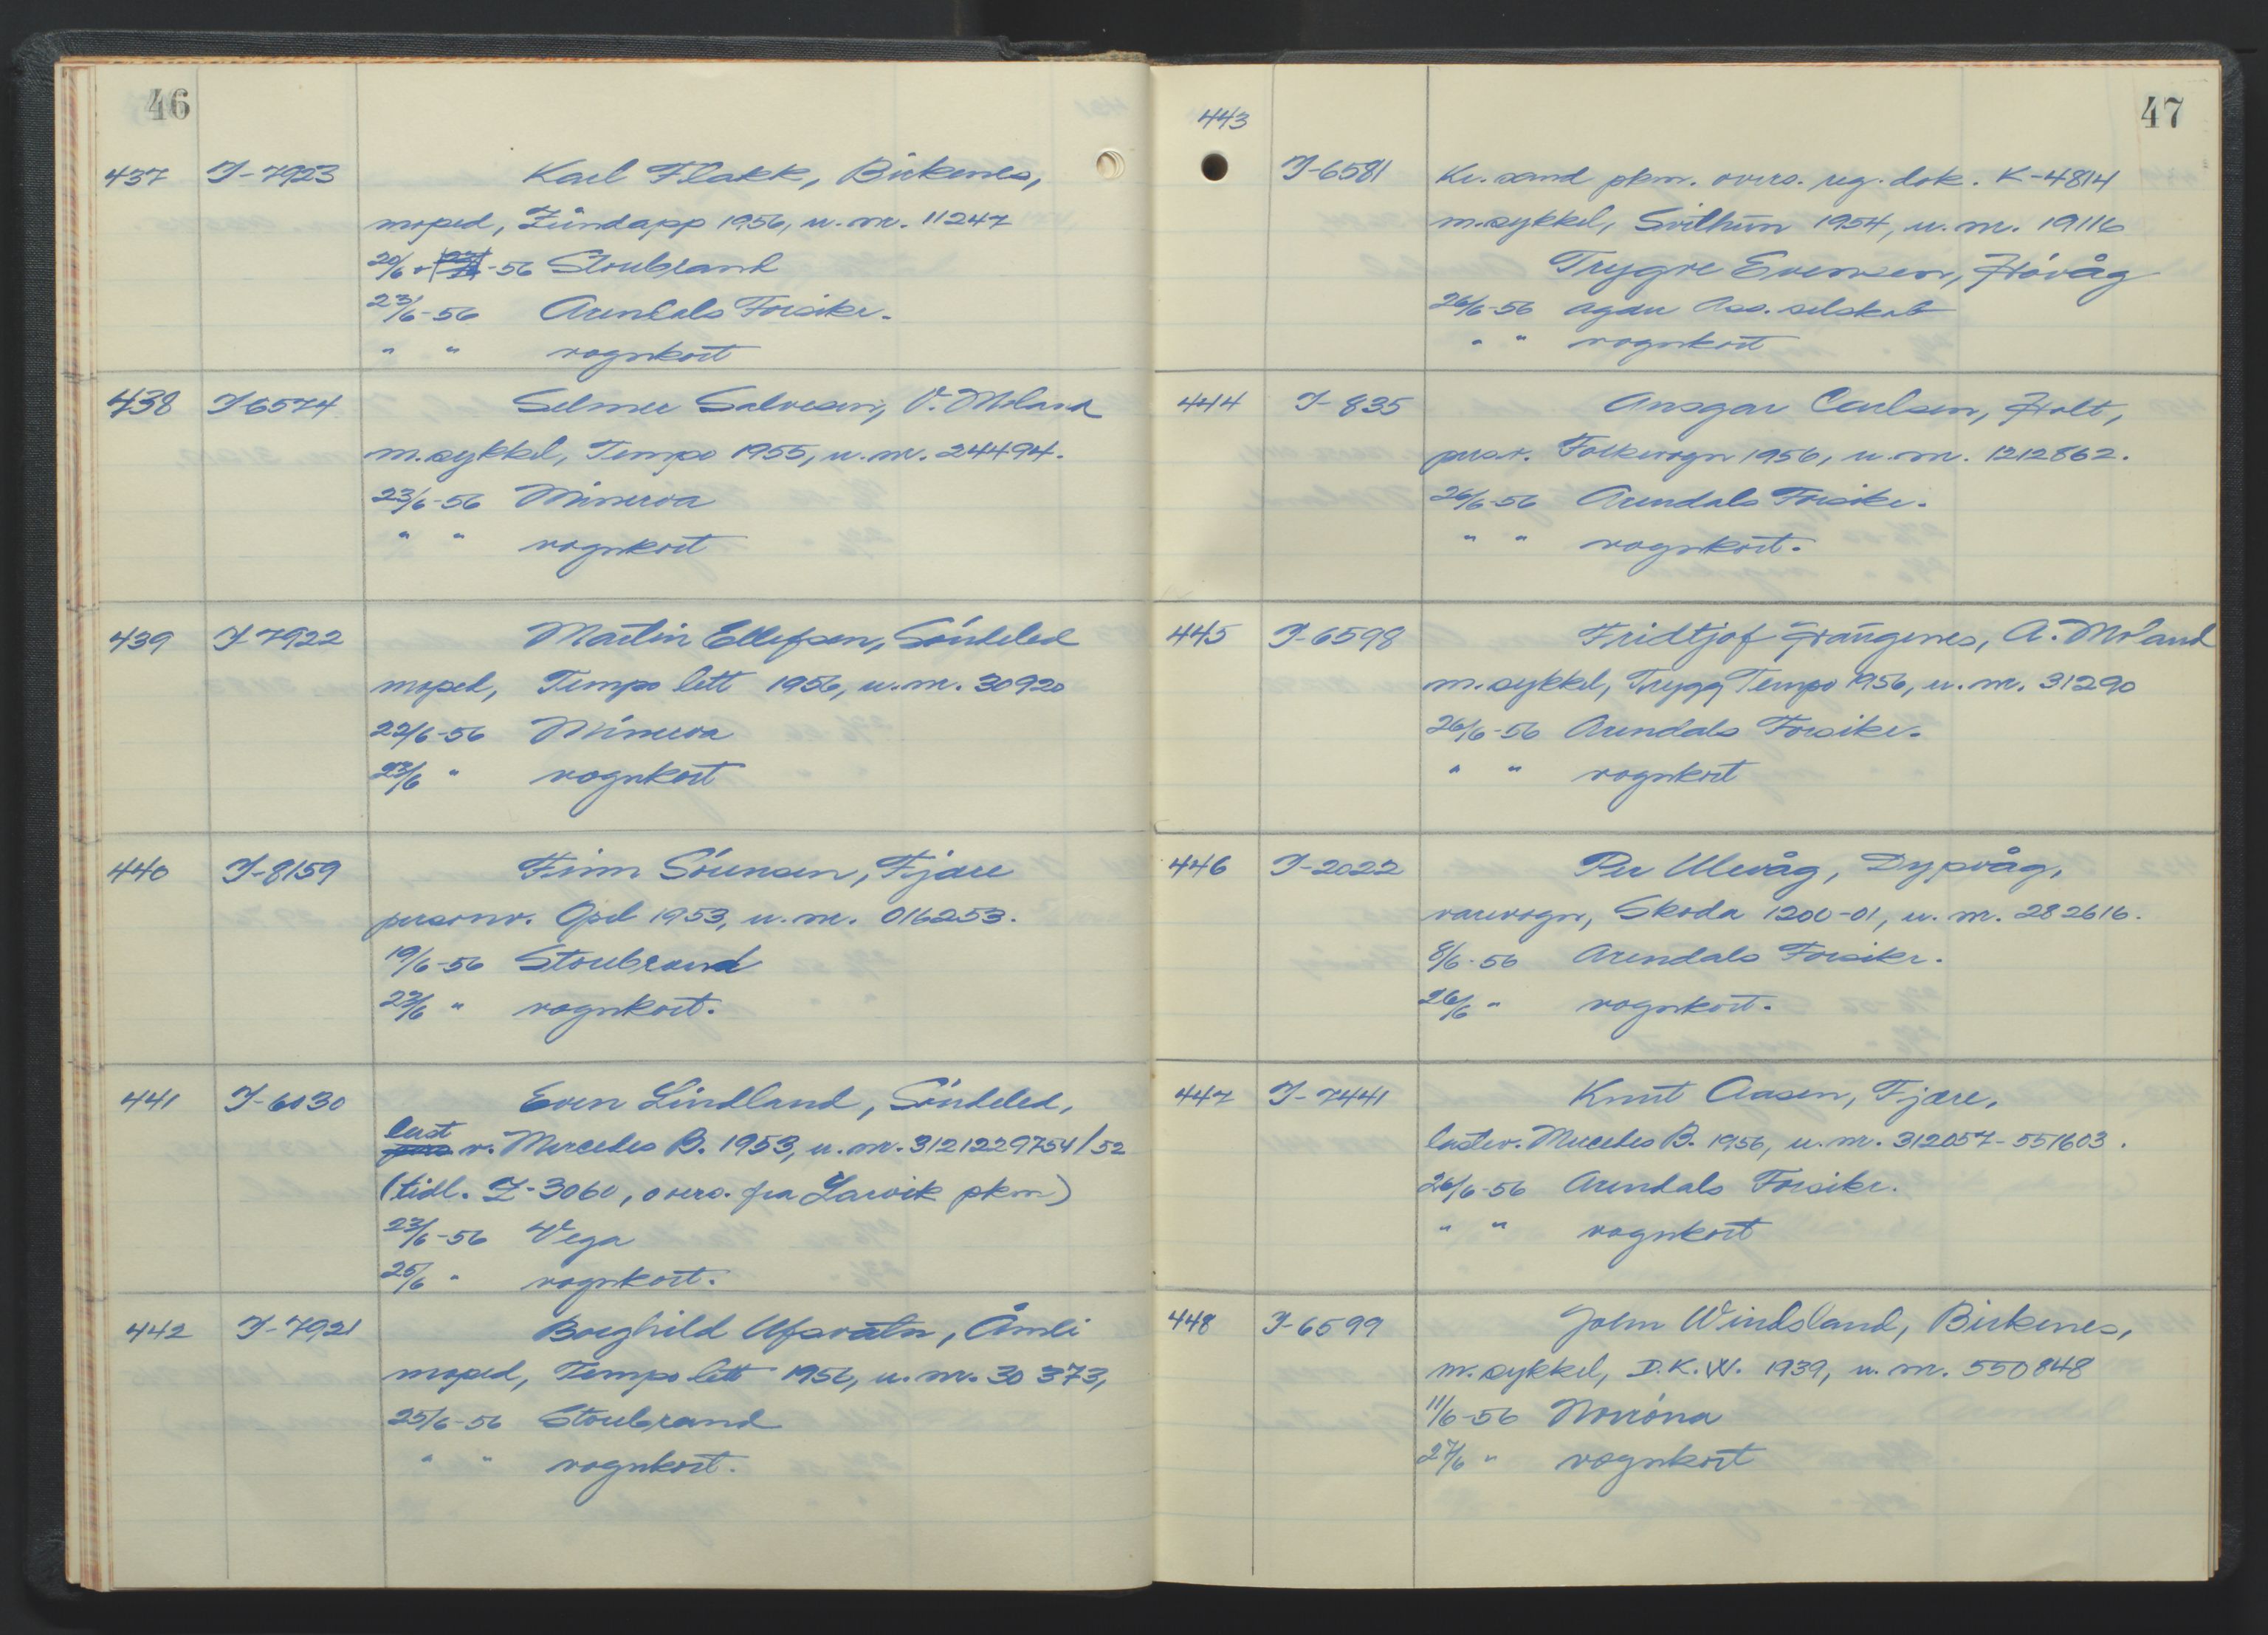 46
437 I-7923 Karl Flakk, Birkenes,
moped, Zündapp 1956, u. nr. 11247
20/6 -56 Storebrand
23/6-56 Arendals Forsikr.
" " vognkort
438 I-6574 Selmer Salvesen, V. Moland
m.sykkel, Tempo 1955, u. nr. 24494.
23/6-56 Minerva
" " vognkort
439 I-7922 Martin Ellefsen, Söndeled
moped, Tempo lett 1956, u. nr. 30920
22/6-56 Minerva
23/6 " vognkort
440 I-8159 Finn Sörensen, Fjære
personv. Opel 1953, u. nr. 016253.
19/6-56 Storebrand
23/6 " vognkort.
441 I-6030 Even Lindland, Söndeled,
last
pers v. Mercedes B. 1953, u. nr. 3121229754/52
(tidl. Z-3060, overs. fra Larvik pkm)
23/6-56 Vega
25/6 " vognkort.
442 I-7921 Borghild Ufsvatn, Åmli
moped, Tempo lett 1956, u. nr. 30373,
25/6-56 Storebrand
" " vognkort.
47
443
I-6581 Kr.sand pkm. overs. reg. dok. K-4814
m.sykkel, Svithun 1954, u. nr. 19116
Trygve Evensen, Hövåg
26/6-56 Agder Ass. selskab
" " vognkort
444 I-835 Ansgar Carlsen, Holt,
pers.v. Folkevogn 1956, u. nr. 1212862.
26/6-56 Arendals Forsikr.
" " vognkort.
445 I-6598 Fridtjof Haugenes, A. Moland
m.sykkel, Trygg Tempo 1956, u. nr. 31290
26/6-56 Arendals Forsikr.
" " vognkort
446 I-2022 Per Ulevåg, Dypvåg,
varevogn, Skoda 1200-01, u. nr. 282616.
8/6-56 Arendals Forsikr.
26/6 " vognkort.
447 I-7441 Knut Aasen, Fjære,
lastev. Mercedes B. 1956, u. nr. 312057-551603.
26/6-56 Arendals Forsikr.
" " vognkort
448 I-6599 John Windsland, Birkenes,
m.sykkel, D.K.W. 1939, u. nr. 550848
11/6-56 Norröna
27/6 " vognkort